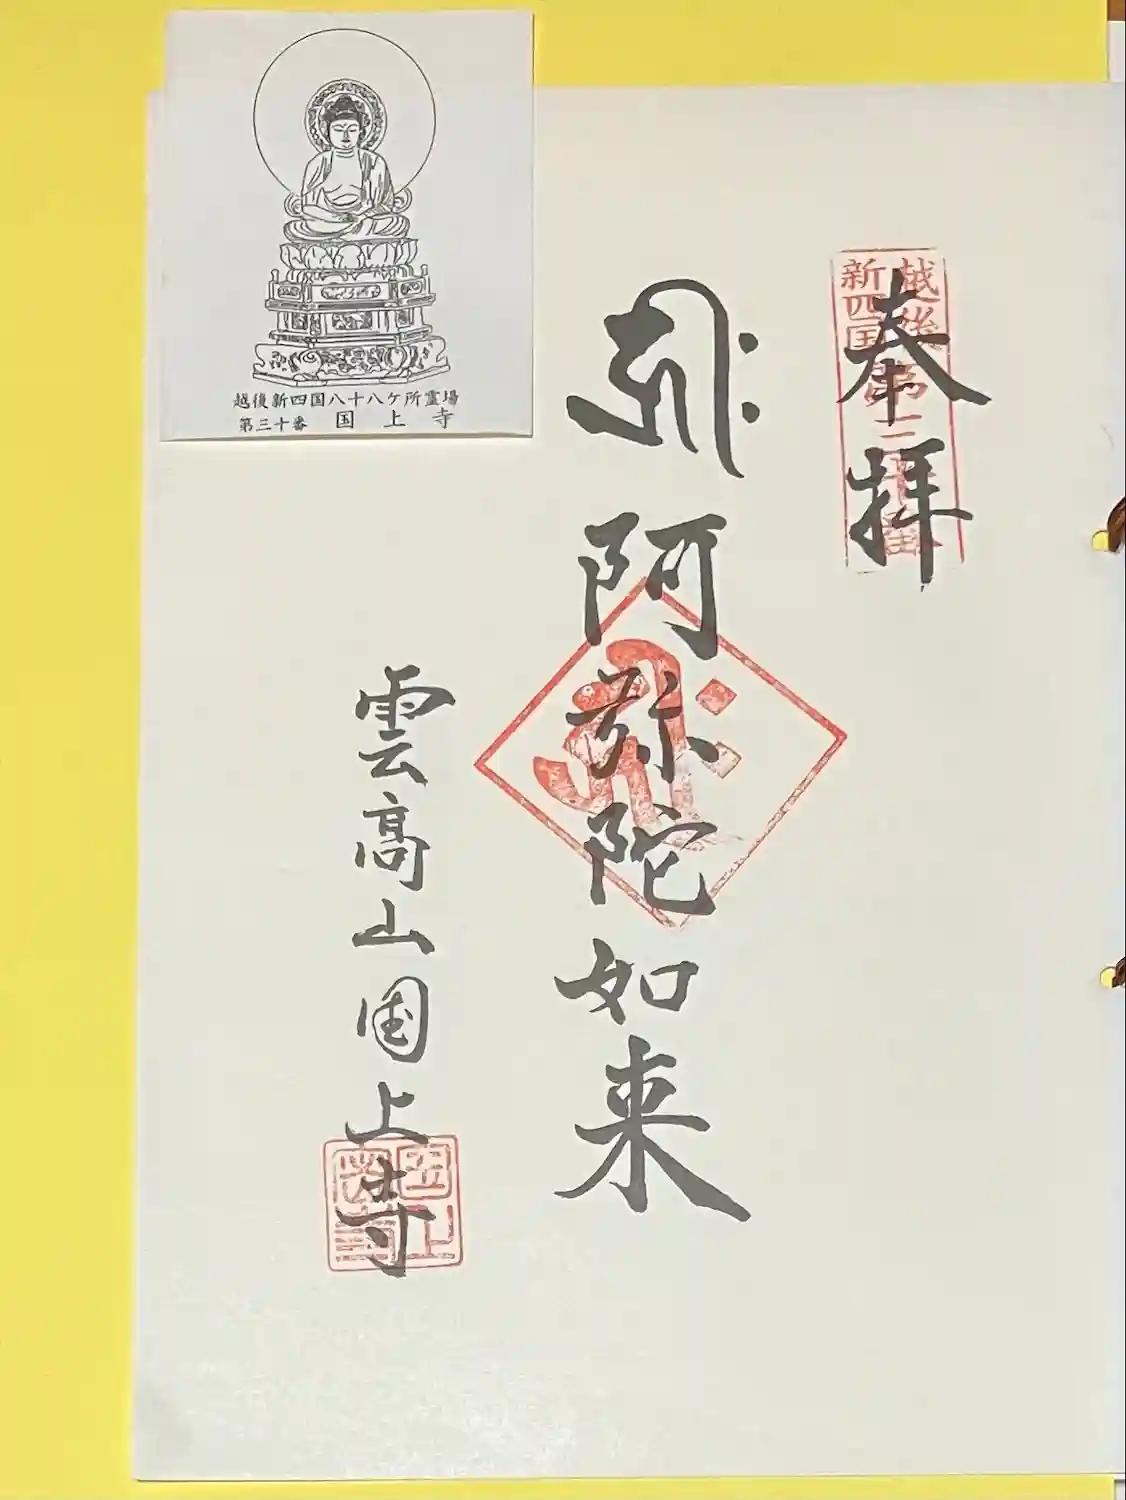 奉拝
越後
新四国
第三十番
𑖮𑖿𑖨𑖱𑖾
阿弥陀如来
雲高山国上寺
越後新四国八十八ケ所霊場
第三十番 国上寺